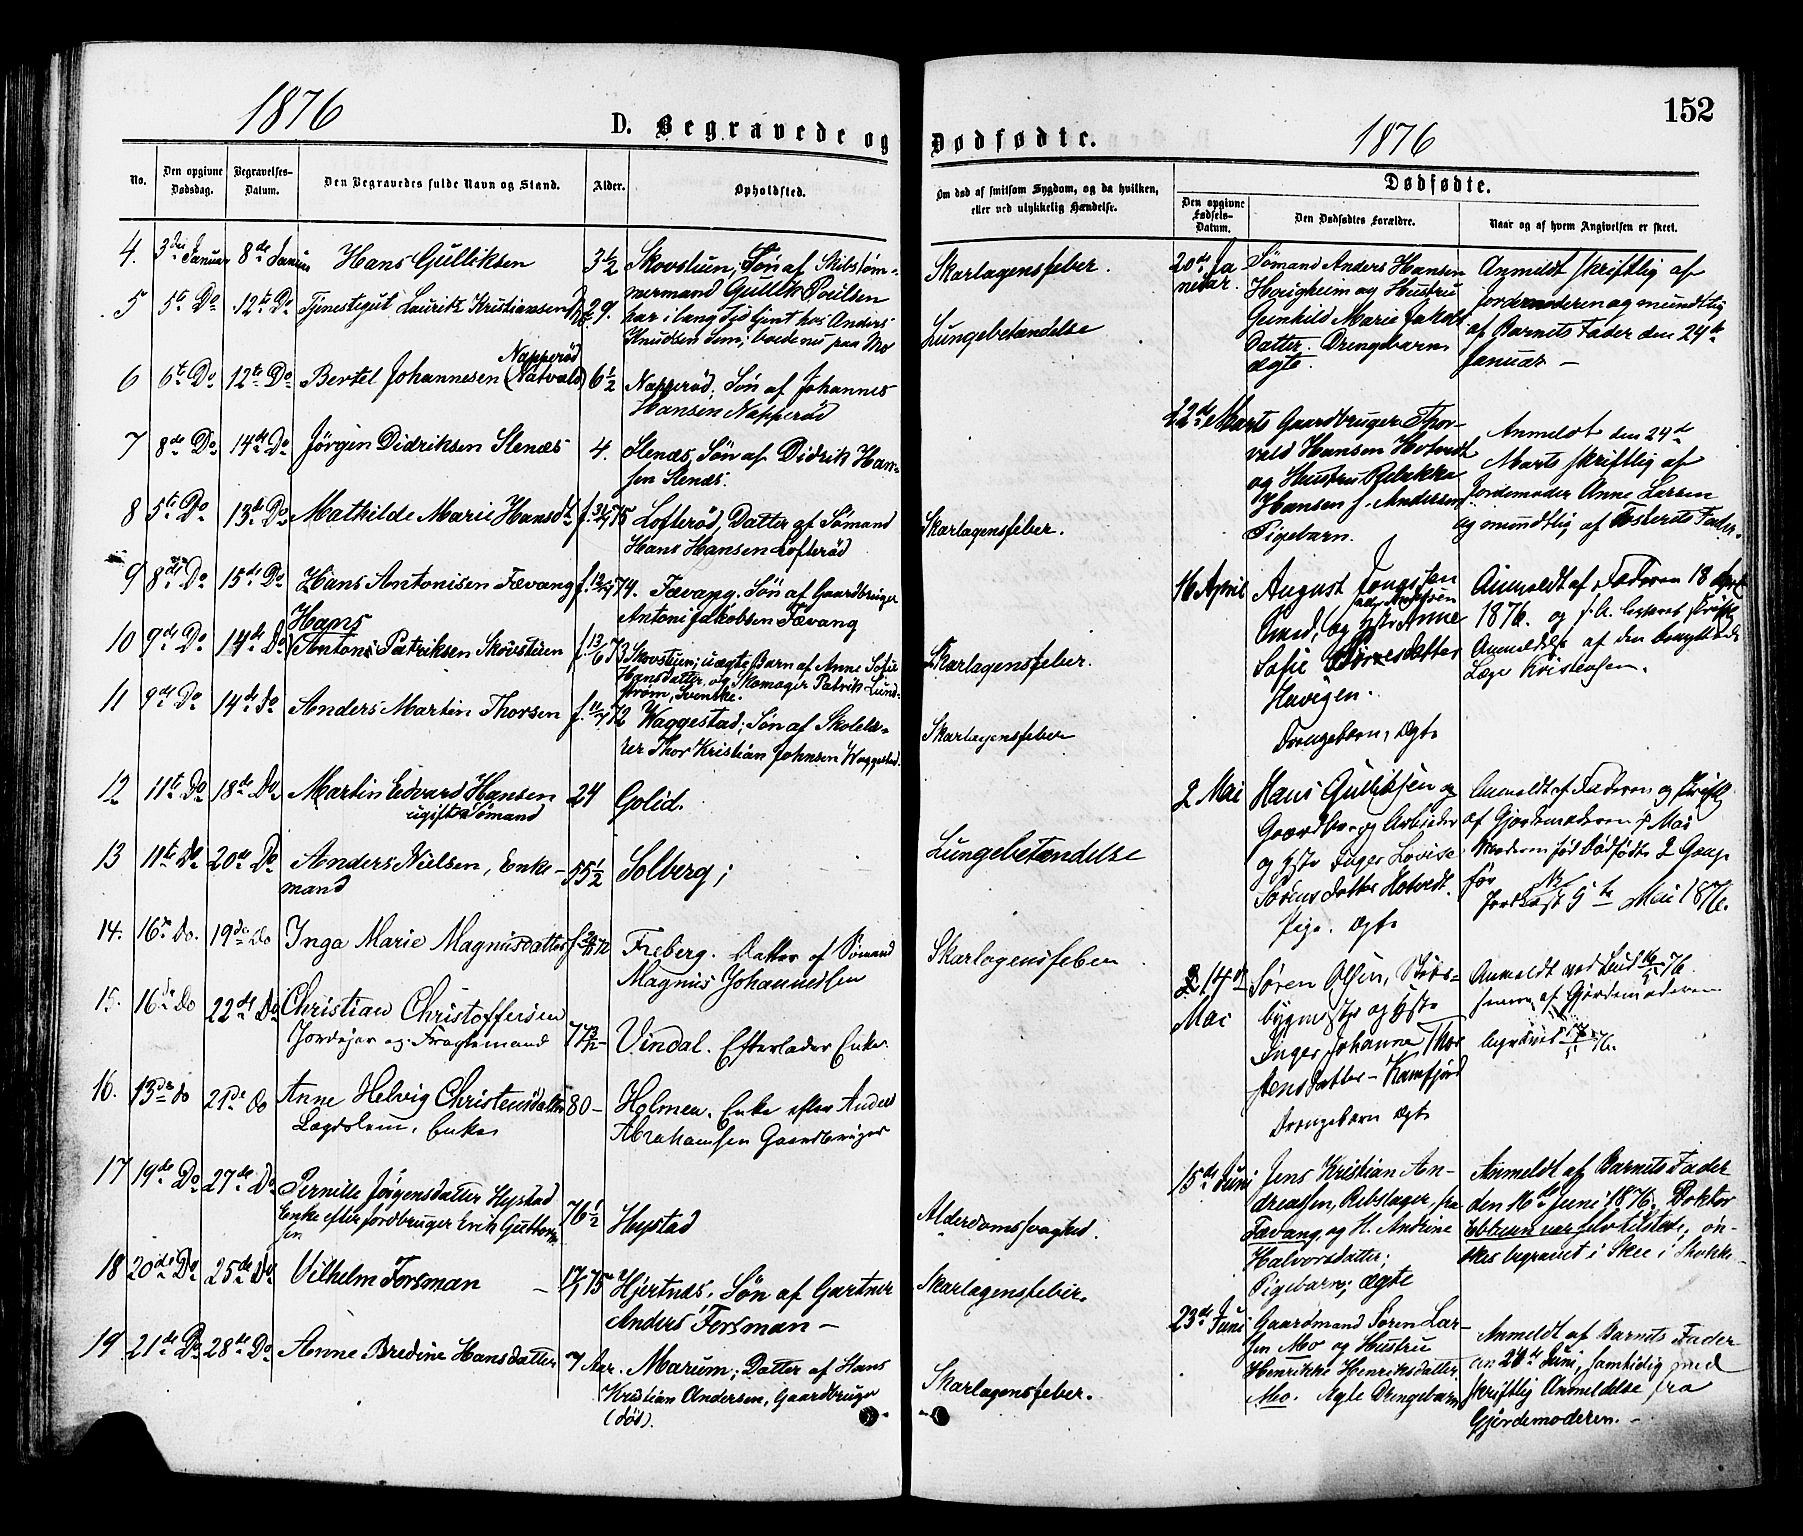 1876
D. Begravede og
No.
Den opgivne Dødsdag.
Begravelses-Datum.
Den Begravedes fulde Navn og Stand.
Alder.
Opholdsted.
4. 3die Januar 8de Januar Hans Gulliksen 3 1/2 Skovstuen; Søn af Skibstøm-
mermand Gullik Poulsen
5 5te Do 12te Do Tjenestegut Lauritz Kristiansen 29. har i lang Tid tjent hos Anders
Knudsen Lem; boede nu paa Mo
6 6te Do 12te Do Bertel Johannesen Napperød (Natvald) 6 1/2 Napperød; Søn af Johannes
Hansen Napperød
7 8de Do 14de Do Jørgen Didriksen Stenæs 4. Stenæs, Søn af Didrik Han-
sen Stenæs.
8 5te Do 13de Do Mathilde Marie Hansdt f. 75 Lofterød, Datter af Sømand
Hans Hansen Lofterød
9 8de Do 15de Do Hans Antonisen Fævang f. 74. Fævang. Søn af Gaardbruger
Antoni Jakobsen Fævang
Hans
10 9de Do 14de Do Anton Patriksen Skovstuen f. 13/6 73 Skovstuen; uægte Barn af Anne Sofie
Hansdatter og Skomager Patrik Lund-
strøm, Svenske.
11 9de Do 14de Do Anders Martin Thorsen f. 11/7 72 Waggestad; Søn af Skolelæ-
rer Thor Kristian Johnsen Waggestad.
12 11te Do 18de Do Martin Edvard Hansen 24 Golid.
ugift Sømand
13 11te Do 20de Do Anders Nielsen, Enke- 55 1/2 Solberg;
mand
14. 16de Do. 19de Do Inga Marie Magnusdatter f. 72 Freberg. Datter af Sømand
Magnus Johannessen
15. 16de Do 22de Do Christian Christoffersen
Jordejer og Fragtemand 77 Vindal. Efterlader Enke
16. 13de do 21de do Anne Helvig Christensdatter 80 – Holmen. Enke efter Anders
Enke Abrahamsen Gaardbruger
17 19de Do 27de Do Pernille Jørgensdatter Hystad
Enke efter Jordbruger Erik Guttorm- 76 1/2 Hystad
sen
18 20de Do 25de Do Vilhelm Forsman – 17/7 75 Hjertnæs. Søn af Gartner
Anders Forsman –
19 21de Do 28de Do Anne Bredine Hansdatter 7 Aar. Marum; Datter af Hans
Kristian Andersen, Gaardbruger
(død).
Dødfødte.
1876
152
Om død af smitsom Sygdom, og da hvilken,
eller ved ulykkelig Hændelse.
Dødfødte.
Den opgivne Fødsels-Datum.
Den Dødfødtes Forældre.
Naar og af hvem Angivelsen er skeet.
Skarlagensfeber.
Lungebetændelse
Skarlagensfeber.
Skarlagensfeber.
Skarlagensfeber
Lungebetændelse
Skarlagensfeber
Alderdomssvaghed.
Skarlagensfeber.
Skarlagensfeber.
20de Ja-
nuar.
Sømand Anders Hansen
og Hustru
Gunhild Marie Jakobs-
datter. Drengebarn
ægte.
Anmeldt skriftlig af
Jordemoderen og mundtlig
af Barnets Fader den 24de
Januar –
22de Marts
Gaardbruger Thor-
vald Hansen Hotvedt
og Hustru Rebekka
Hansen f. Andersen
Pigebarn.
Anmeldt den 24de
Marts skriftlig af
Jordemoder Anne Larsen
og mundtlig af Fosterets Fader.
16 April
August
Smed, og Hstr Anne
Sofie
Havigen.
Drengebarn, ægte
Anmeldt af Faderen 18 April
1876. og
Anmeldelse af den benyttede
Læge Kristensen.
2 Mai
Hans Gulliksen og
Gaardbr. og Arbeider
og Hstr Inger Lovise
Sørensdatter Hotvedt.
Pige. ægte
Anmeldt af Faderen og skriftl
af Gjordemoderen 5 Mai
Moderen fød dødfødte 2 Gange
før
Jordkast 5te Mai 1876.
14de
Mai
Søren Olsen, Skibs-
bygmester og Hstr
Inger Johanne Thor
stensdatter – Kamfjord
Drengebarn ægte
Anmeldt ved Bud 16/5 76.
af Gjordemoderen
15de Juni
Jens Kristian An-
dreassen, Rebslager, fra
Fævang, og H. Andrine
Halvorsdatter;
Pigebarn; ægte
Anmeldt af Barnets Fader
den 16de Juni 1876. Doktor
Ebbesen var selv tilstede; øn-
skes begravet i Skee i Stokke –
23de Juni
Gaardmand Søren Lar-
sen Mo og Hustru
Henrikke Henriksdatter
Mo. Ægte Drengebarn
Anmeldt af Barnets Fader
Juni, samtidig med
skriftlig Anmeldelse fra
Gjordemoderen. –